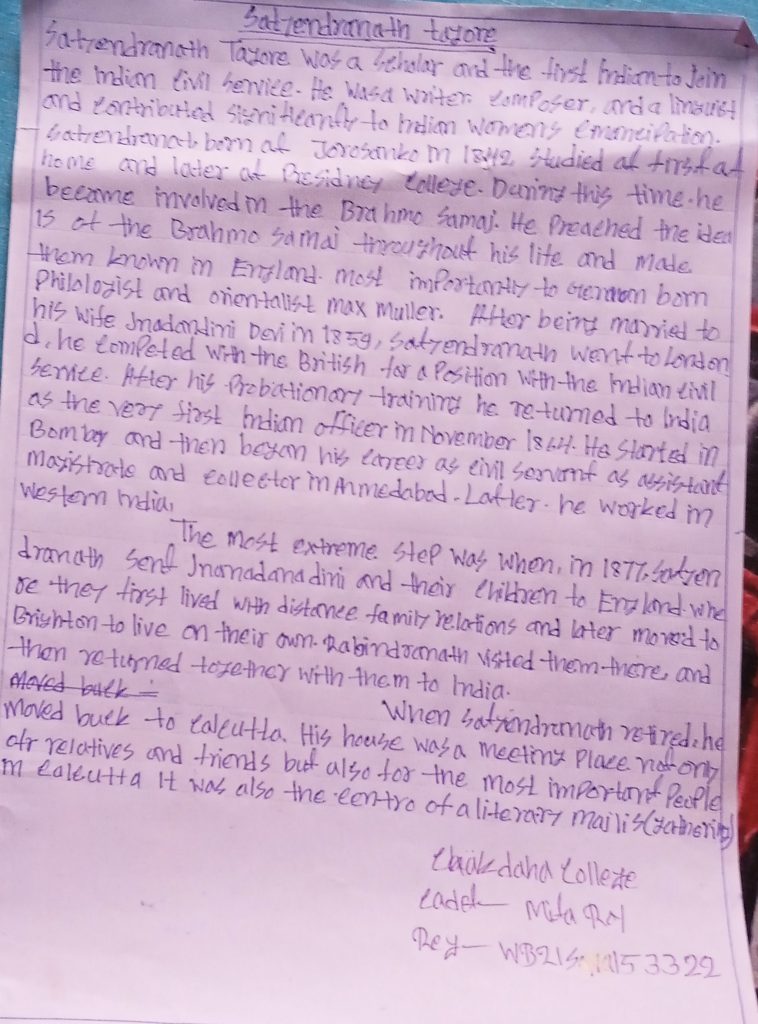 Satyendranath tagore
Satyendranath Tagore was a scholar and the first Indian to Join
the Indian Civil Service. He was a writer composer, and a linguist
and contributed significantly to Indian women's emancipation.
Satyendranat born at Jorosanko in 1842 studied at first at
home and later at Presidncy College. During this time he
became involved in the Brahmo Samaj. He Preached the idea
is of the Brahmo Samaj throughout his life and made
them known in England. most importantly to German born
Philologist and orientalist max Muller. After being married to
his wife Jnadandini Devi in 1859, Satyendranath went to London
d, he competed with the British for a Position with the Indian civil
service. After his Probationary training he returned to India
as the very first Indian officer in November 1864. He started in
Bombay and then began his career as civil servant as assistant
magistrate and collector in Ahmedabad. Latter he worked in
western India,
The most extreme step was when, in 1877, Satyen
dranath sent Jnanadanadini and their children to England whe
re they first lived with distance family relations and later moved to
Brighton to live on their own. Rabindranath visited them there, and
then returned together with them to India.
moved back
When Satyendranath retired, he
moved back to Calcutta. His house was a meeting Place not only
ofr relatives and friends but also for the most important People
in Calcutta It was also the centro of a literary majlis (gathering)
Chakdaha College
Cadet Mita Roy
Reg- 53322